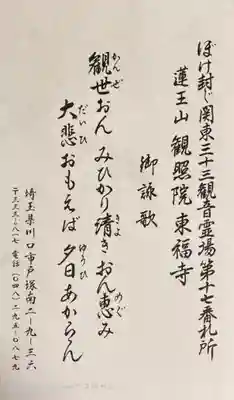 ぼけ封じ関東三十三観音霊場第十七番札所
蓮王山 観照院 東福寺
御詠歌
観世おん みひかり靖きおん恵み
かんぜ きよ めぐ
大悲おもえば 夕日あからん
だいひ ゆうひ
埼玉県川口市戸塚南二ー九ー三六
〒三三三ー八一七 電話(〇四八)二九五ー〇八七九